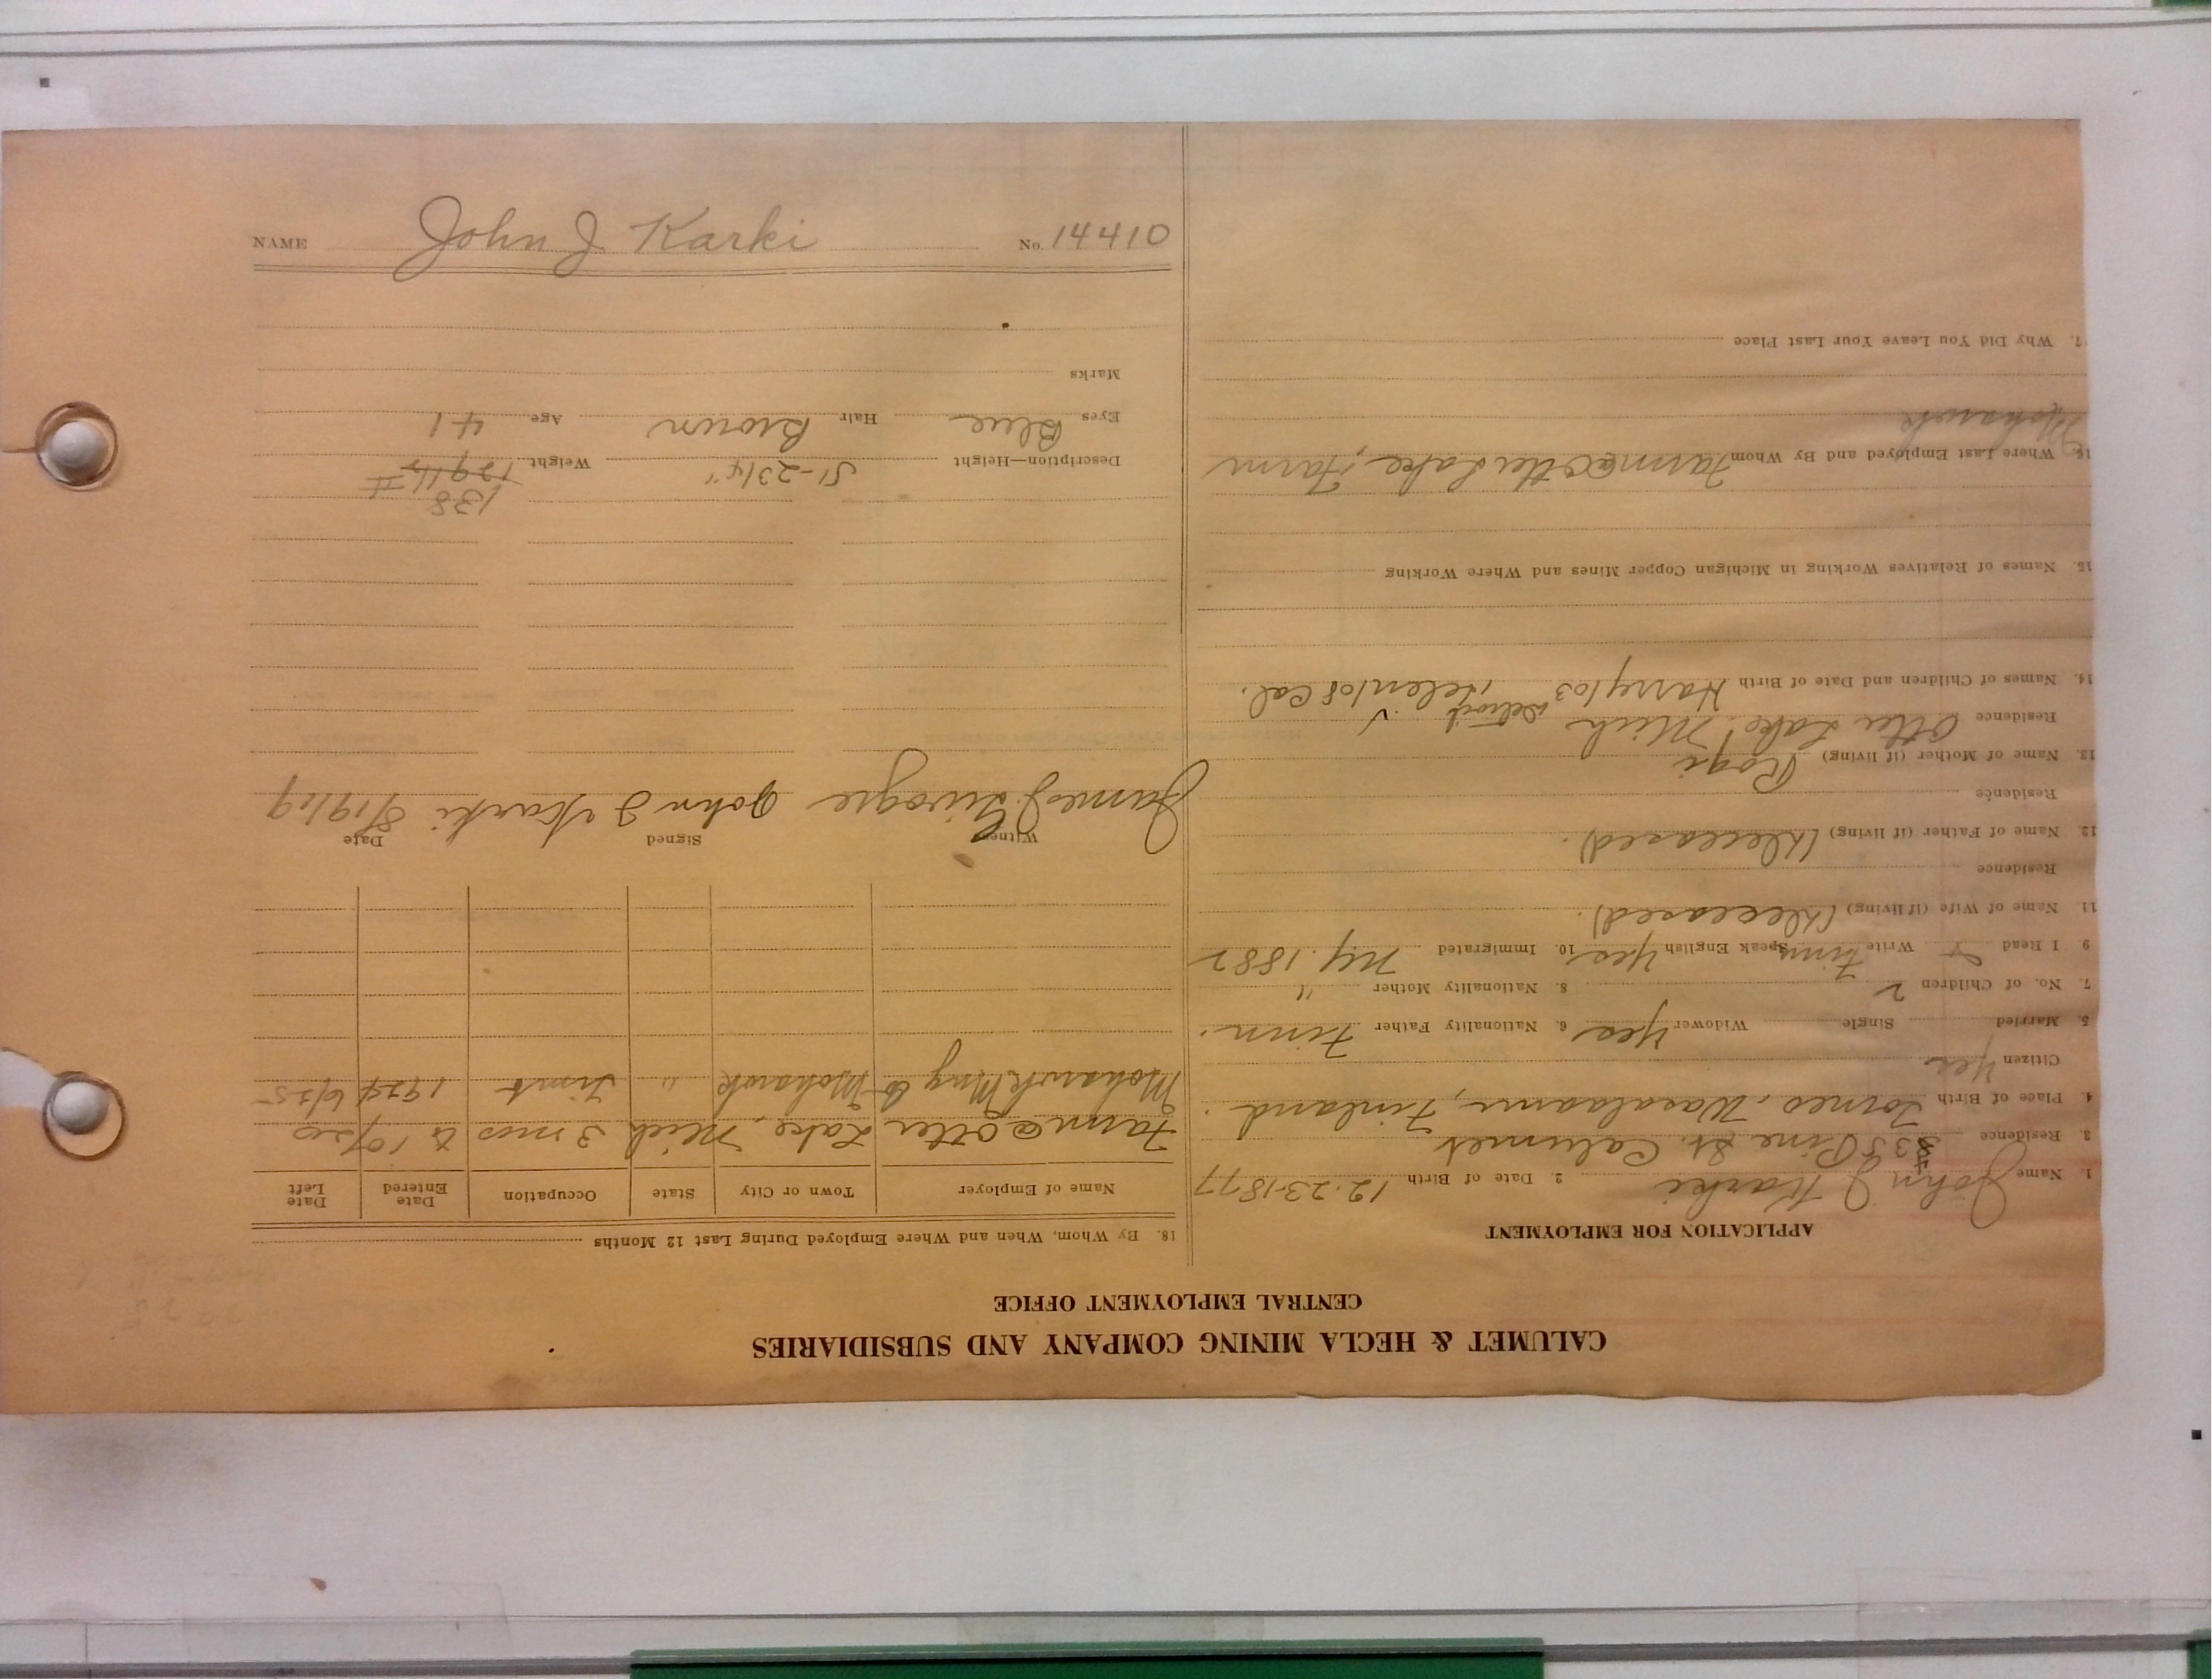 NAME John J Karki No. 14410
CALUMET & HECLA MINING COMPANY AND SUBSIDIARIES
CENTRAL EMPLOYMENT OFFICE
APPLICATION FOR EMPLOYMENT
1. Name John J Karki 2. Date of Birth 12-23-1877
3. Residence Pine St. Calumet
4. Place of Birth Torneo, Wasalaane, Finland.
Citizen Yes
5. Married Single Widower Yes 6. Nationality Father Finn.
7. No. of Children 2 8. Nationality Mother "
9 I Read Write Finn Speak English Yes 10. Immigrated N.Y. 1882
11. Name of Wife (if living) (Deceased).
Residence
12. Name of Father (if living) (Deceased).
Residence
13. Name of Mother (if living)
Residence Otter Lake, Mich
14. Names of Children and Date of Birth Harry/03 Detroit Helen/08 Cal.
15. Names of Relatives Working in Michigan Copper Mines and Where Working
16. Where Last Employed and By Whom Farm @ Otter Lake, Farm
Mohawk
17. Why Did You Leave Your Last Place
18. By Whom, When and Where Employed During Last 12 Months
Name of Employer Town or City State Occupation Date Entered Date Left
Farm @ Otter Lake, Mich 3 mos to 10/20
Mohawk Mng Co Mohawk " Timt 1924 6/25
Witness Signed Date
James J. John J Karki 8/19/19
138
Description—Height 5'-2 3/4" Weight 129 1/2 #
Eyes Blue Hair Brown Age 41
Marks